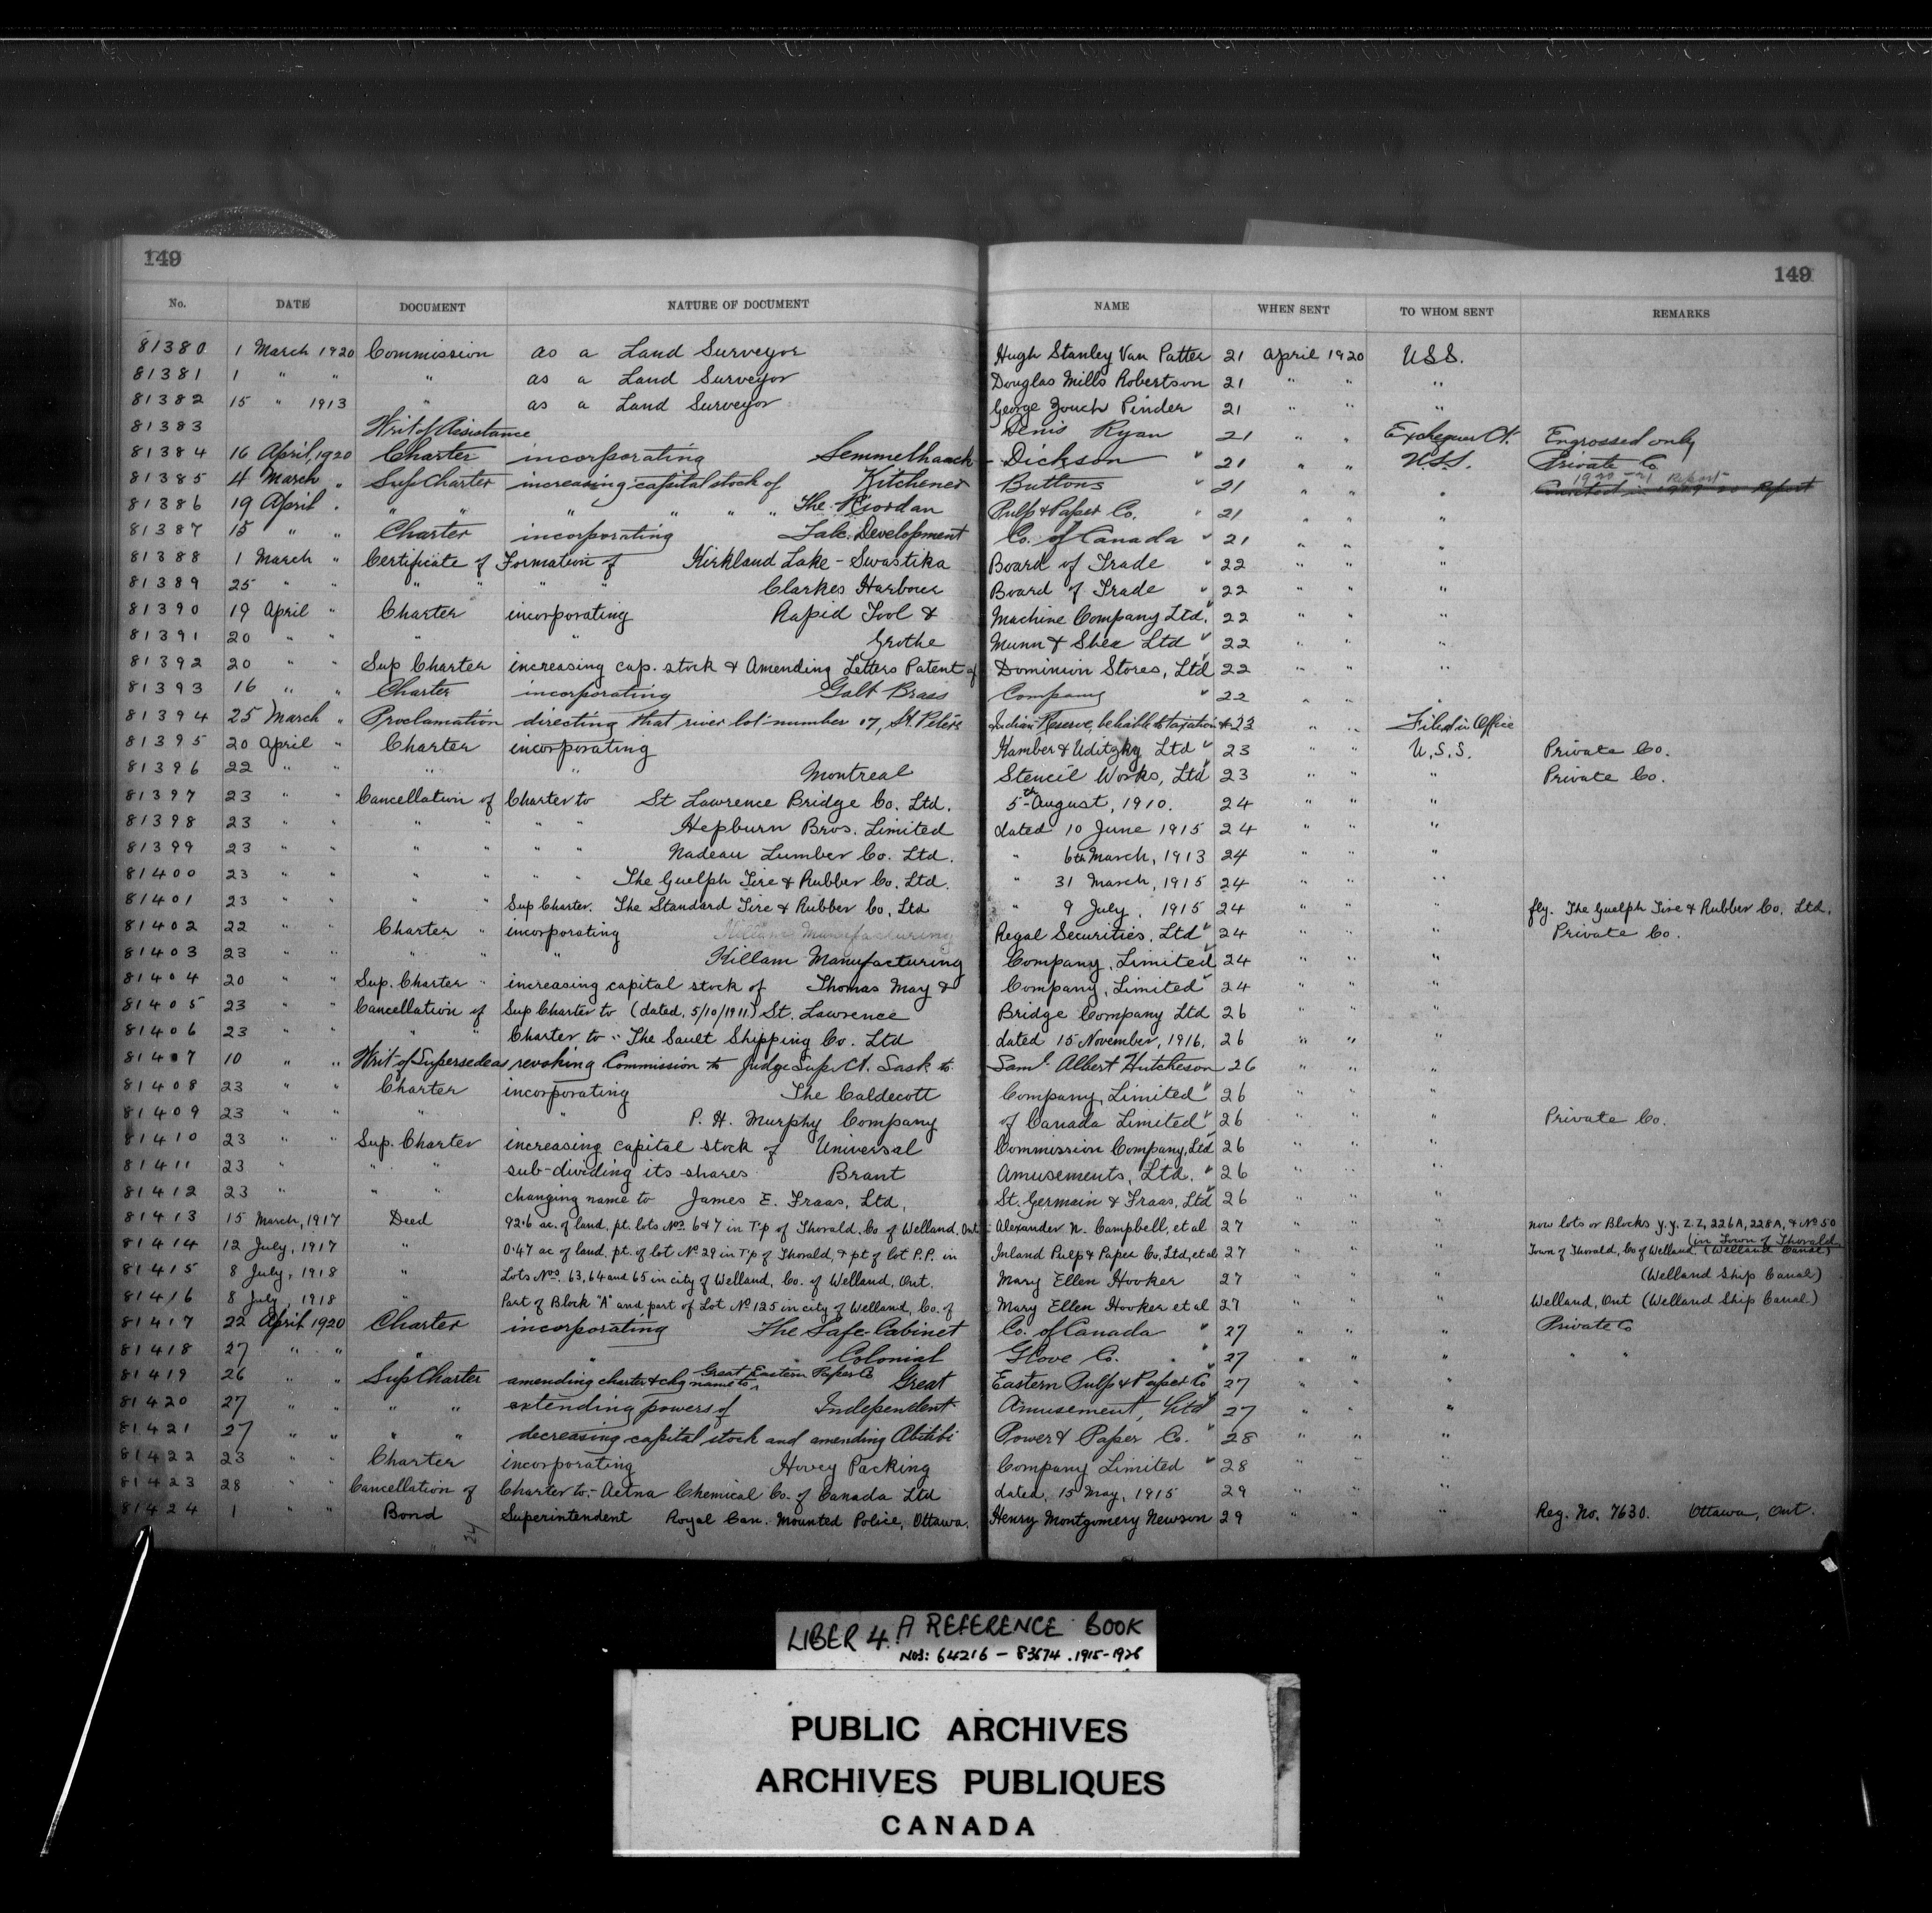 149 149
No. DATE DOCUMENT NATURE OF DOCUMENT NAME WHEN SENT TO WHOM SENT REMARKS
81380 1 March 1920 Commission as a Land Surveyor Hugh Stanley Van Patter 21 April 1920 U.S.S.
81381 1 " " " as a Land Surveyor Douglas Mills Robertson 21 " " "
81382 15 " 1913 as a Land Surveyor George Zouch Pinder 21 " " "
81383 Writ of Assistance Denis Ryan 21 " " Exchequer Ct. Engrossed only
81384 16 April, 1920 Charter incorporating Semmelhaack - Dickson " 21 " " USS. Private Co
81385 4 March " Sup Charter increasing capital stock of Kitchener Buttons " 21 " " " 1920-21 Report
81386 19 April " " " " " " " The Riordan Pulp & Paper Co. " 21 " " "
81387 15 " " Charter incorporating Talc Development Co. of Canada " 21 " " "
81388 1 March " Certificate of Formation of Kirkland Lake - Swastika Board of Trade " 22 " " "
81389 25 " " " " " " Clarkes Harbour Board of Trade " 22 " " "
81390 19 April " Charter incorporating Rapid Tool & Machine Company Ltd. 22 " " "
81391 20 " " " " Grothe Munn & Shea Ltd 22 " " "
81392 20 " " Sup Charter increasing cap. stock & Amending Letters Patent of Dominion Stores, Ltd 22 " " "
81393 16 " " Charter incorporating Galt Brass Company " 22 " " "
81394 25 March " Proclamation directing that river lot number 17, St. Peters Indian Reserve, be liable to taxation &c 23 " " Filed in Office
81395 20 April " Charter incorporating Kamber & Uditzky Ltd 23 " " U.S.S. Private Co.
81396 22 " " " " Montreal Stencil Works, Ltd 23 " " " Private Co.
81397 23 " " Cancellation of Charter to St Lawrence Bridge Co. Ltd. 5th August, 1910. 24 " " "
81398 23 " " " " " " Hepburn Bros. Limited dated 10 June 1915 24 " " "
81399 23 " " " " " " Nadeau Lumber Co. Ltd. " 6th March, 1913 24 " " "
81400 23 " " " " " " The Guelph Tire & Rubber Co. Ltd. " 31 March, 1915 24 " " "
81401 23 " " " " Sup Charter. The Standard Tire & Rubber Co. Ltd " 9 July, 1915 24 " " " fly. The Guelph Tire & Rubber Co. Ltd.
81402 22 " " Charter " incorporating Regal Securities, Ltd 24 " " " Private Co.
81403 23 " " " " " Killam Manufacturing Company, Limited 24 " " "
81404 20 " " Sup. Charter " increasing capital stock of Thomas May & Company, Limited 24 " " "
81405 23 " " Cancellation of Sup Charter to (dated, 5/10/1911) St. Lawrence Bridge Company Ltd 26 " " "
81406 23 " " " " Charter to - The Sault Shipping Co. Ltd dated 15 November, 1916. 26 " " "
81407 10 " " Writ of Supersedeas revoking Commission to Judge Sup. Ct. Sask to Saml. Albert Hutcheson 26 " " "
81408 23 " " Charter incorporating The Caldecott Company, Limited 26 " " "
81409 23 " " " " P. H. Murphy Company of Canada Limited 26 " " " Private Co.
81410 23 " " Sup. Charter increasing capital stock of Universal Commission Company, Ltd 26 " " "
81411 23 " " " sub-dividing its shares Brant Amusements, Ltd. " 26 " " "
81412 23 " " " changing name to James E. Fraas, Ltd, St. Germain & Fraas, Ltd 26 " " "
81413 15 March, 1917 Deed 92.6 ac. of land, pt. lots Nos. 6 & 7 in T'p of Thorald, Co of Welland, Ont. Alexander N. Campbell, et al 27 " " " now lots or Blocks Y.Y. Z.Z, 226A, 228A, & No 50 (in Town of Thorald
81414 12 July, 1917 " 0.47 ac of land, pt. of lot No 29 in T'p of Thorald, & pt of lot P.P. in Inland Pulp & Paper Co, Ltd, et al 27 " " " Town of Thorald, Co of Welland (Welland Canal)
81415 8 July, 1918 " Lots Nos. 63, 64 and 65 in city of Welland, Co. of Welland, Ont. Mary Ellen Hooker 27 " " " (Welland Ship Canal)
81416 8 July, 1918 " Part of Block "A" and part of Lot No 125 in city of Welland, Co. of Mary Ellen Hooker et al 27 " " " Welland, Ont (Welland Ship Canal)
81417 22 April 1920 Charter incorporating The Safe-Cabinet Co. of Canada " 27 " " " Private Co
81418 27 " " " " Colonial Glove Co. " 27 " " " " "
81419 26 " " Sup Charter amending charter & chg name to Great Eastern Paper Co Great Eastern Pulp & Paper Co 27 " " "
81420 27 " " " " extending powers of Independent Amusement, Ltd 27 " " "
81421 27 " " " " decreasing capital stock and amending Abitibi Power & Paper Co. " 28 " " "
81422 23 " " Charter incorporating Hovey Packing Company Limited " 28 " " "
81423 28 " " Cancellation of Charter to - Aetna Chemical Co. of Canada Ltd dated, 15 May, 1915 29 " " "
81424 1 " " Bond Superintendent Royal Can. Mounted Police, Ottawa. Henry Montgomery Newson 29 " " " Reg. No. 7630. Ottawa, Ont.
LIBER 4. A REFERENCE BOOK
NOS: 64216 - 83674 . 1915-1926
PUBLIC ARCHIVES
ARCHIVES PUBLIQUES
CANADA